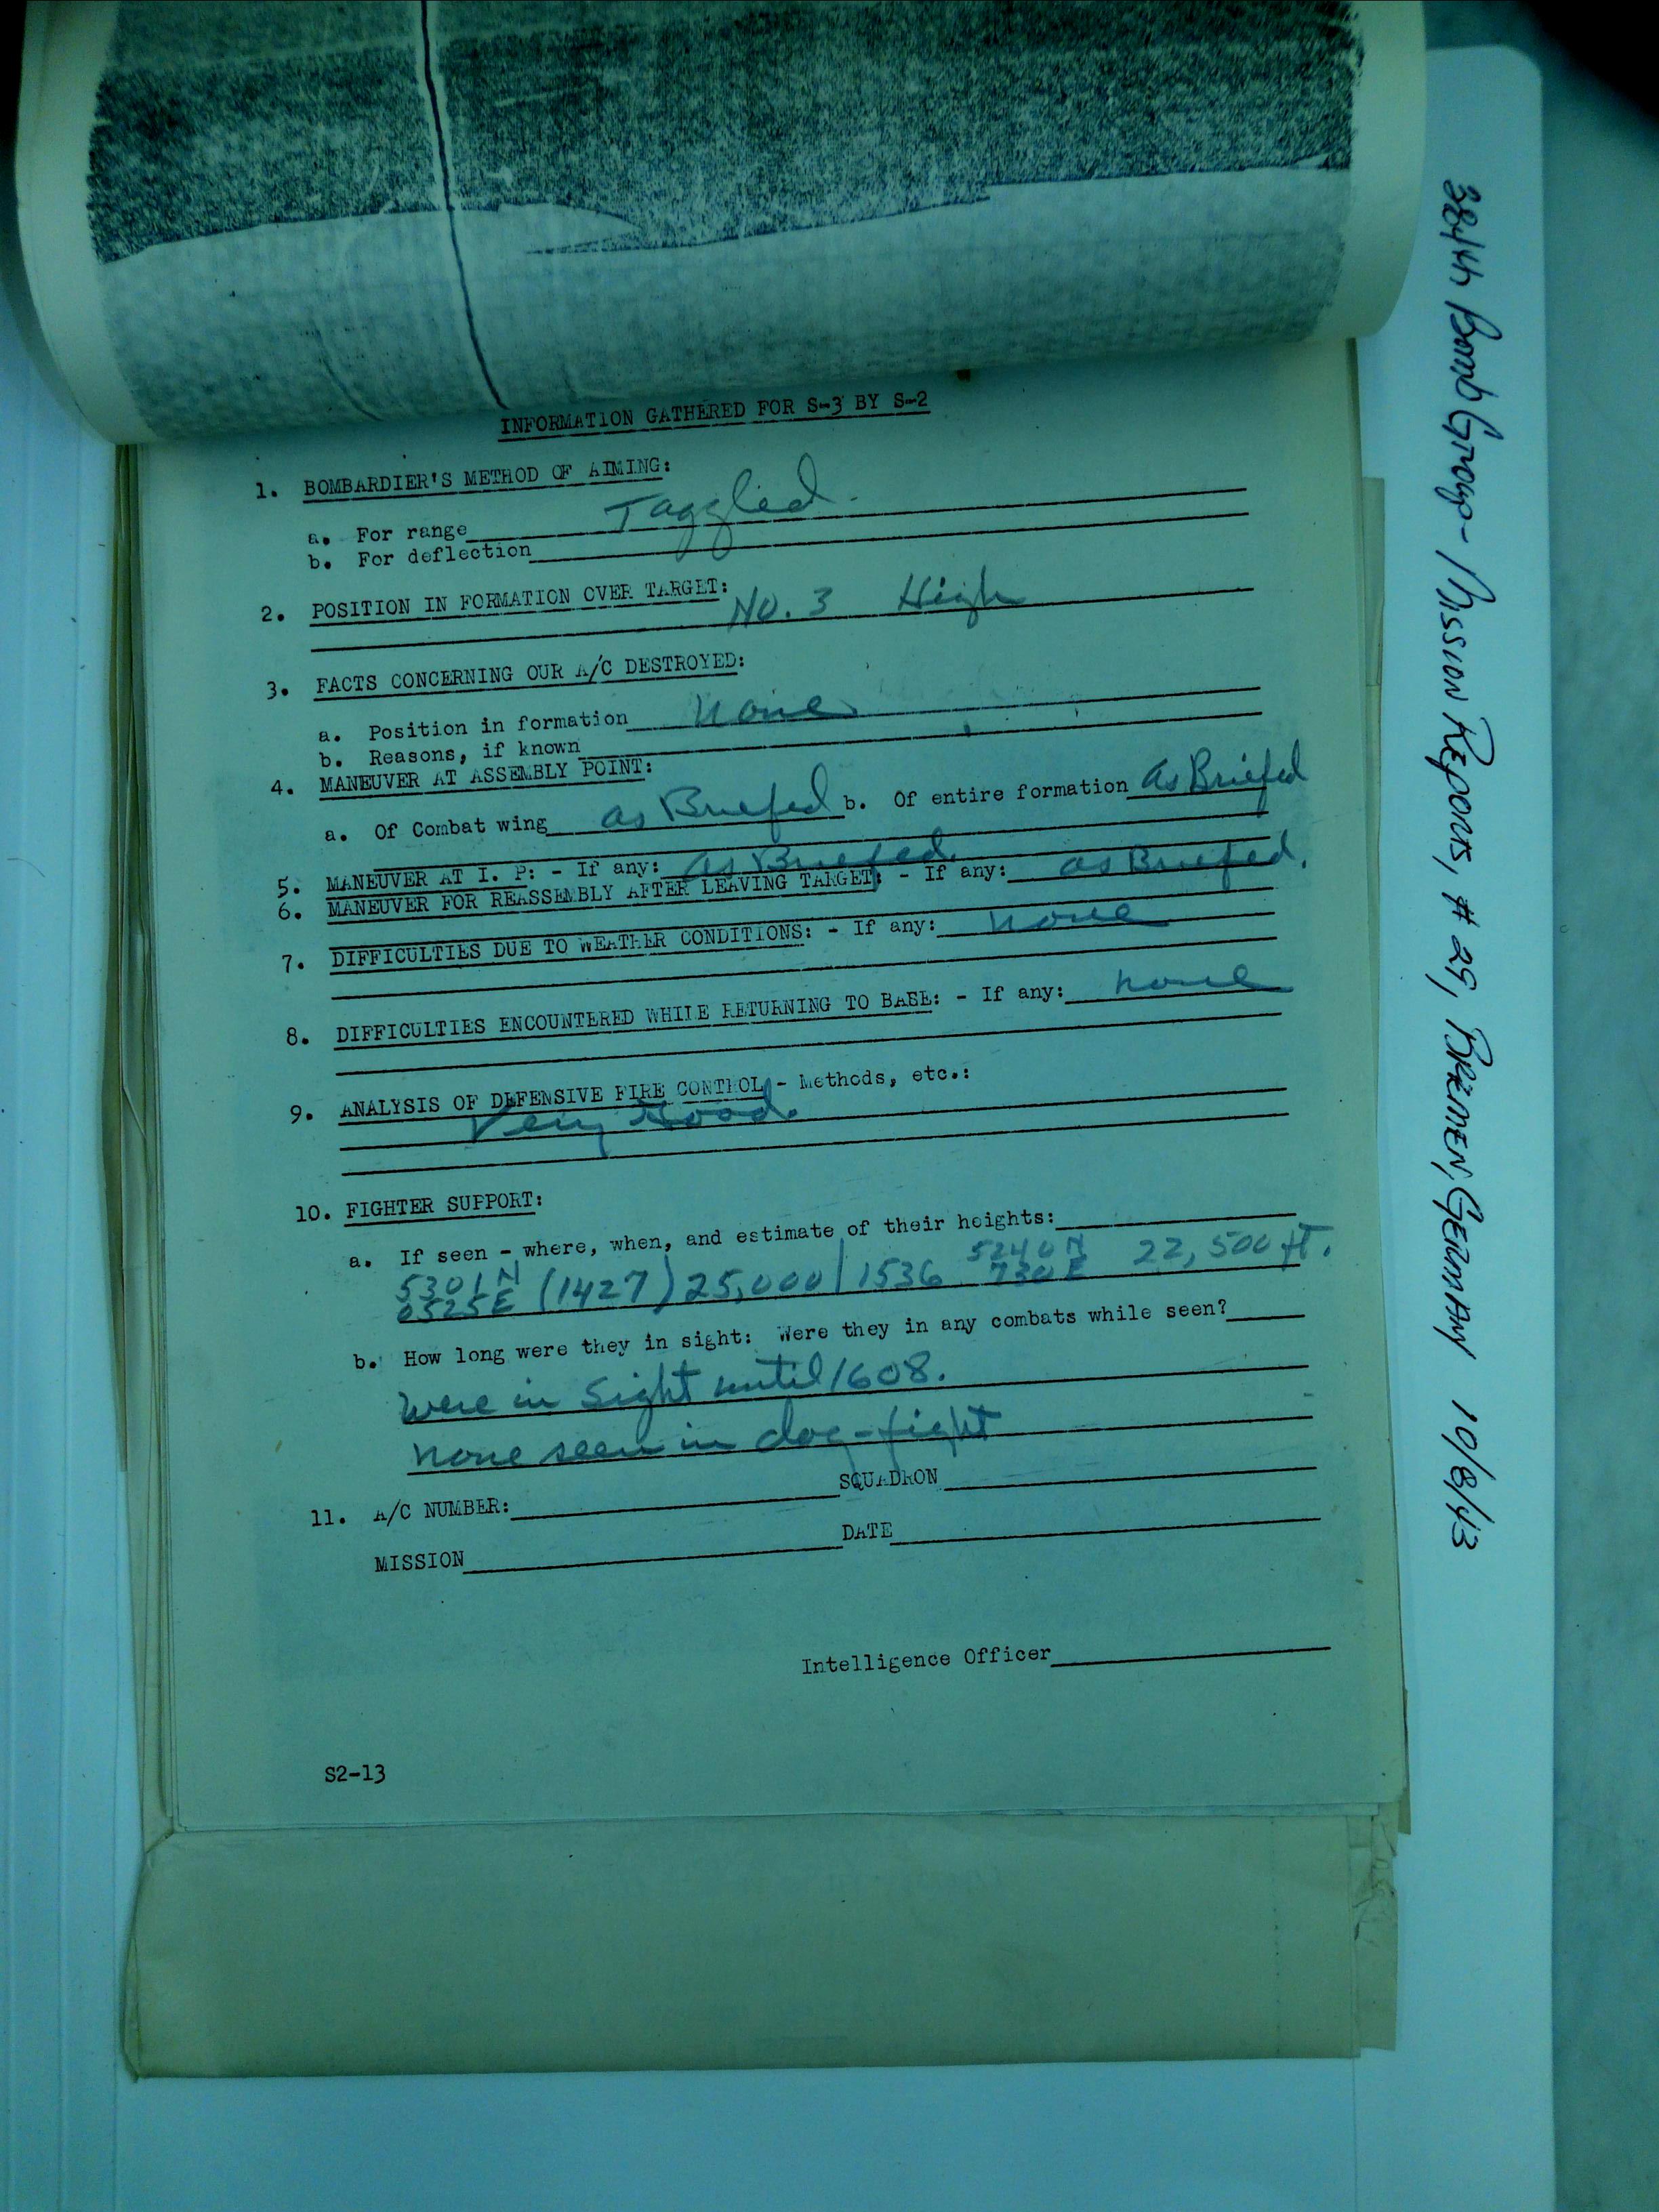 INFORMATION GATHERED FOR S-3 BY S-2
1. BOMBARDIER'S METHOD OF AIMING:
a. For range Taggled.
b. For deflection
2. POSITION IN FORMATION OVER TARGET: No. 3 High
3. FACTS CONCERNING OUR A/C DESTROYED:
a. Position in formation none
b. Reasons, if known
4. MANEUVER AT ASSEMBLY POINT:
a. Of Combat wing as Briefed b. Of entire formation as Briefed
5. MANEUVER AT I. P: - If any: as Briefed.
6. MANEUVER FOR REASSEMBLY AFTER LEAVING TARGET: - If any: as Briefed.
7. DIFFICULTIES DUE TO WEATHER CONDITIONS: - If any: none
8. DIFFICULTIES ENCOUNTERED WHILE RETURNING TO BASE: - If any: none
9. ANALYSIS OF DEFENSIVE FIRE CONTROL - Methods, etc.:
Very Good.
10. FIGHTER SUPPORT:
a. If seen - where, when, and estimate of their heights:
5301N 0525E (1427) 25,000 | 1536 5240N 730E 22,500 ft.
b. How long were they in sight: Were they in any combats while seen?
Were in Sight until 1608.
None seen in dog-fight
11. A/C NUMBER: SQUADRON
MISSION DATE
Intelligence Officer
S2-13
384th Bomb Group - Mission Reports, # 25, BREMEN, GERMANY 10/8/43